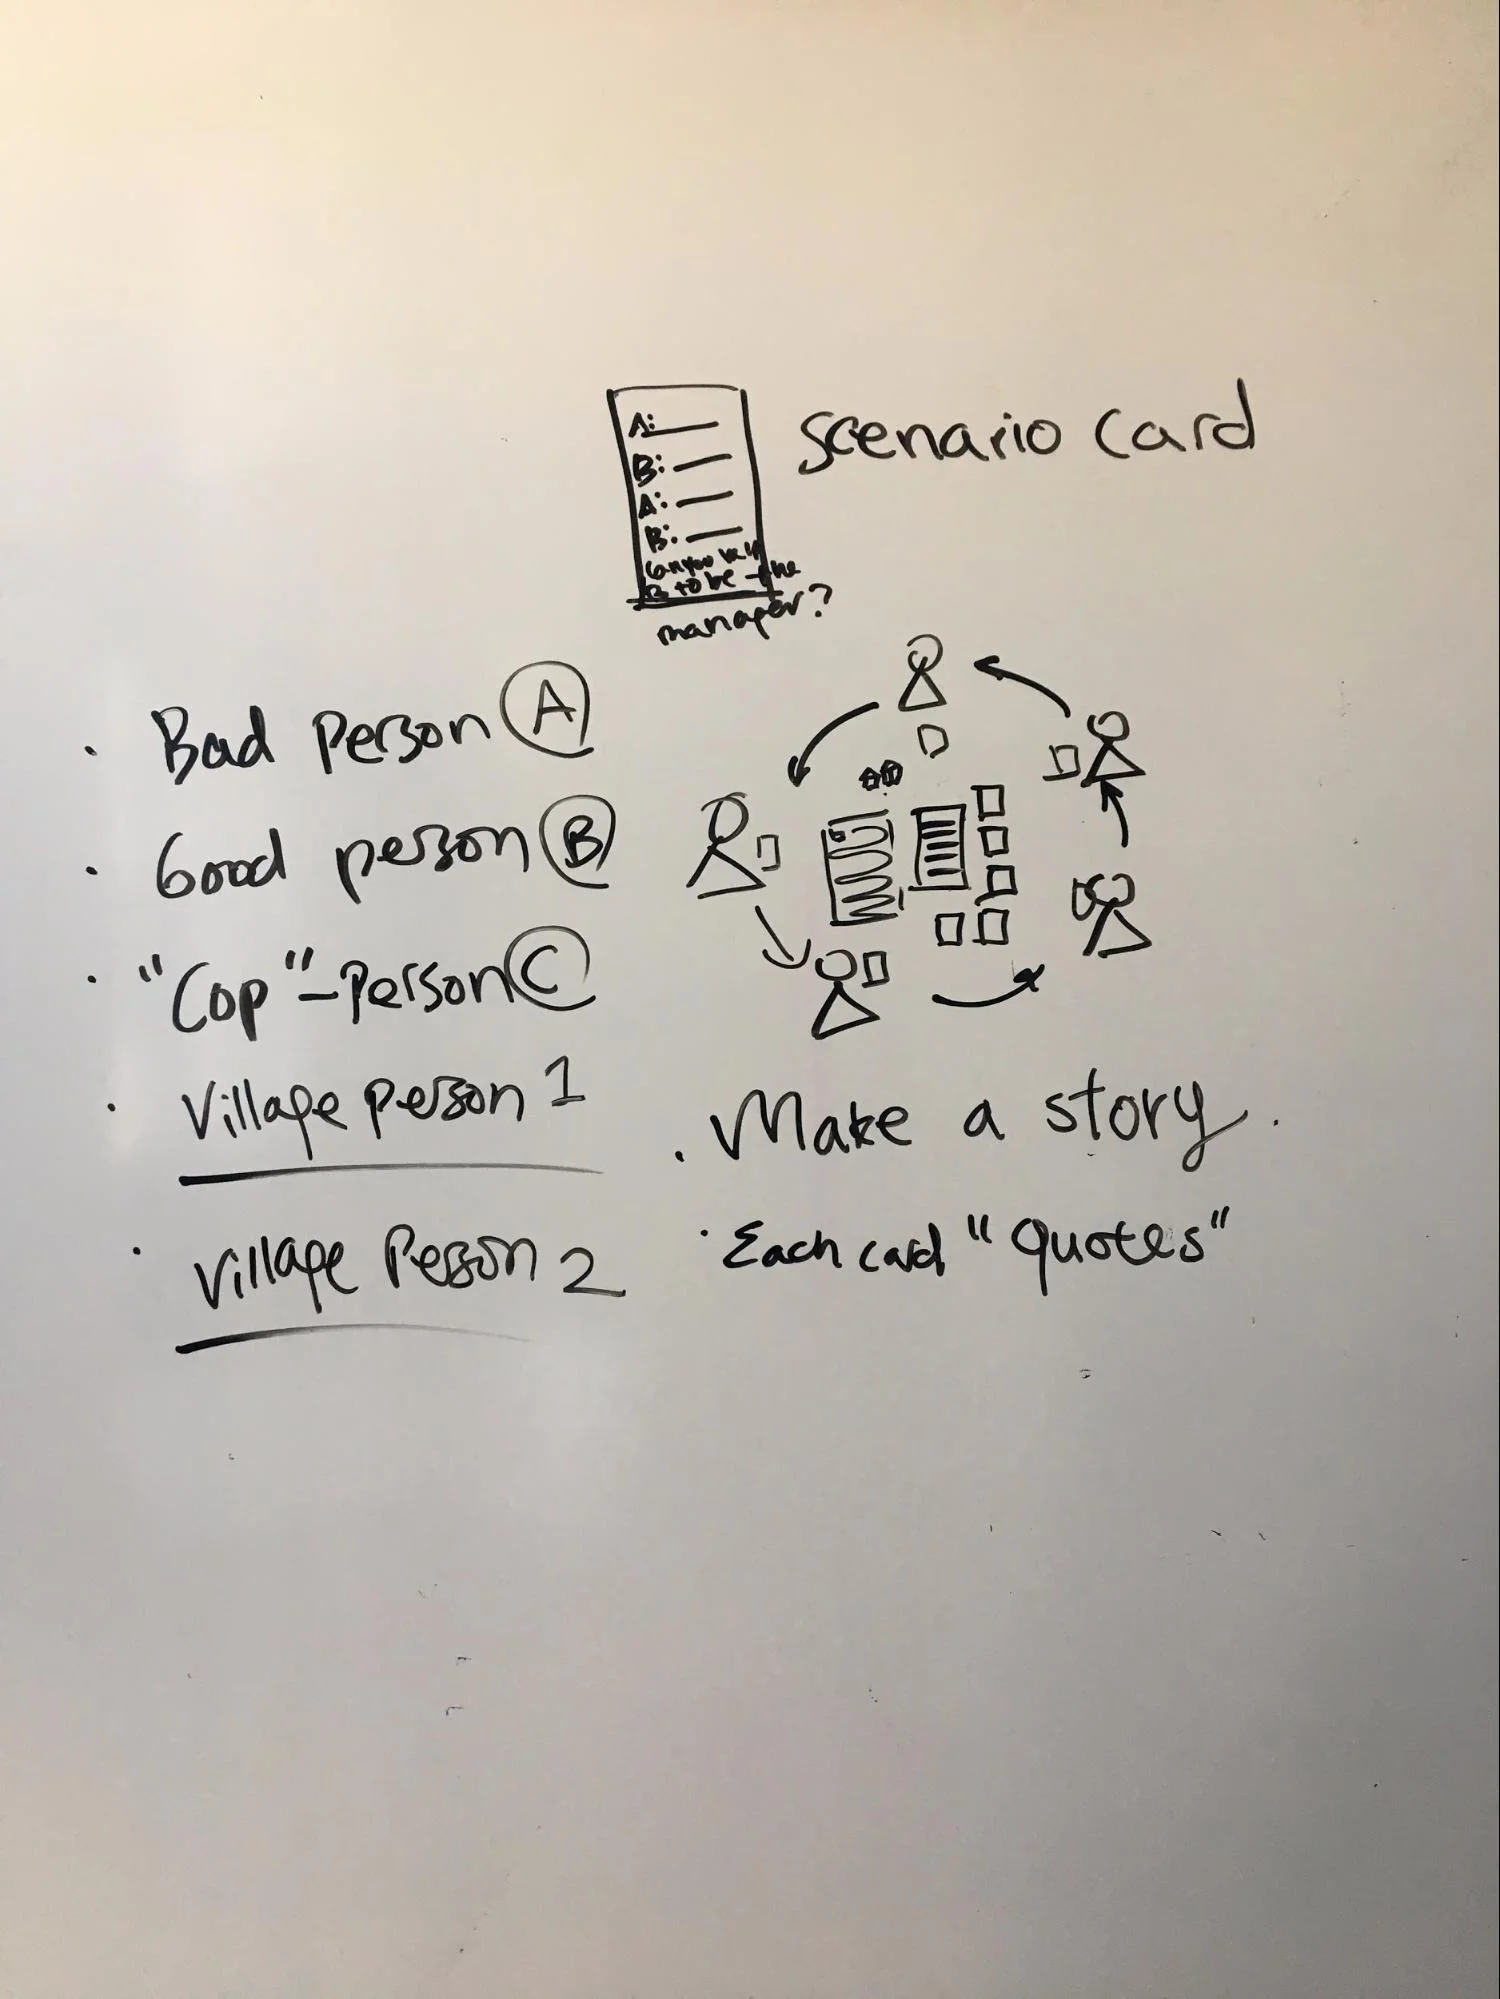 A:
B:
A:
B:
Can you help
B to be the
manager?
scenario card
· Bad person A
· Good person B
· "Cop"-Person C
· Village person 1
· Village Person 2
· Make a story.
· Each card "quotes"